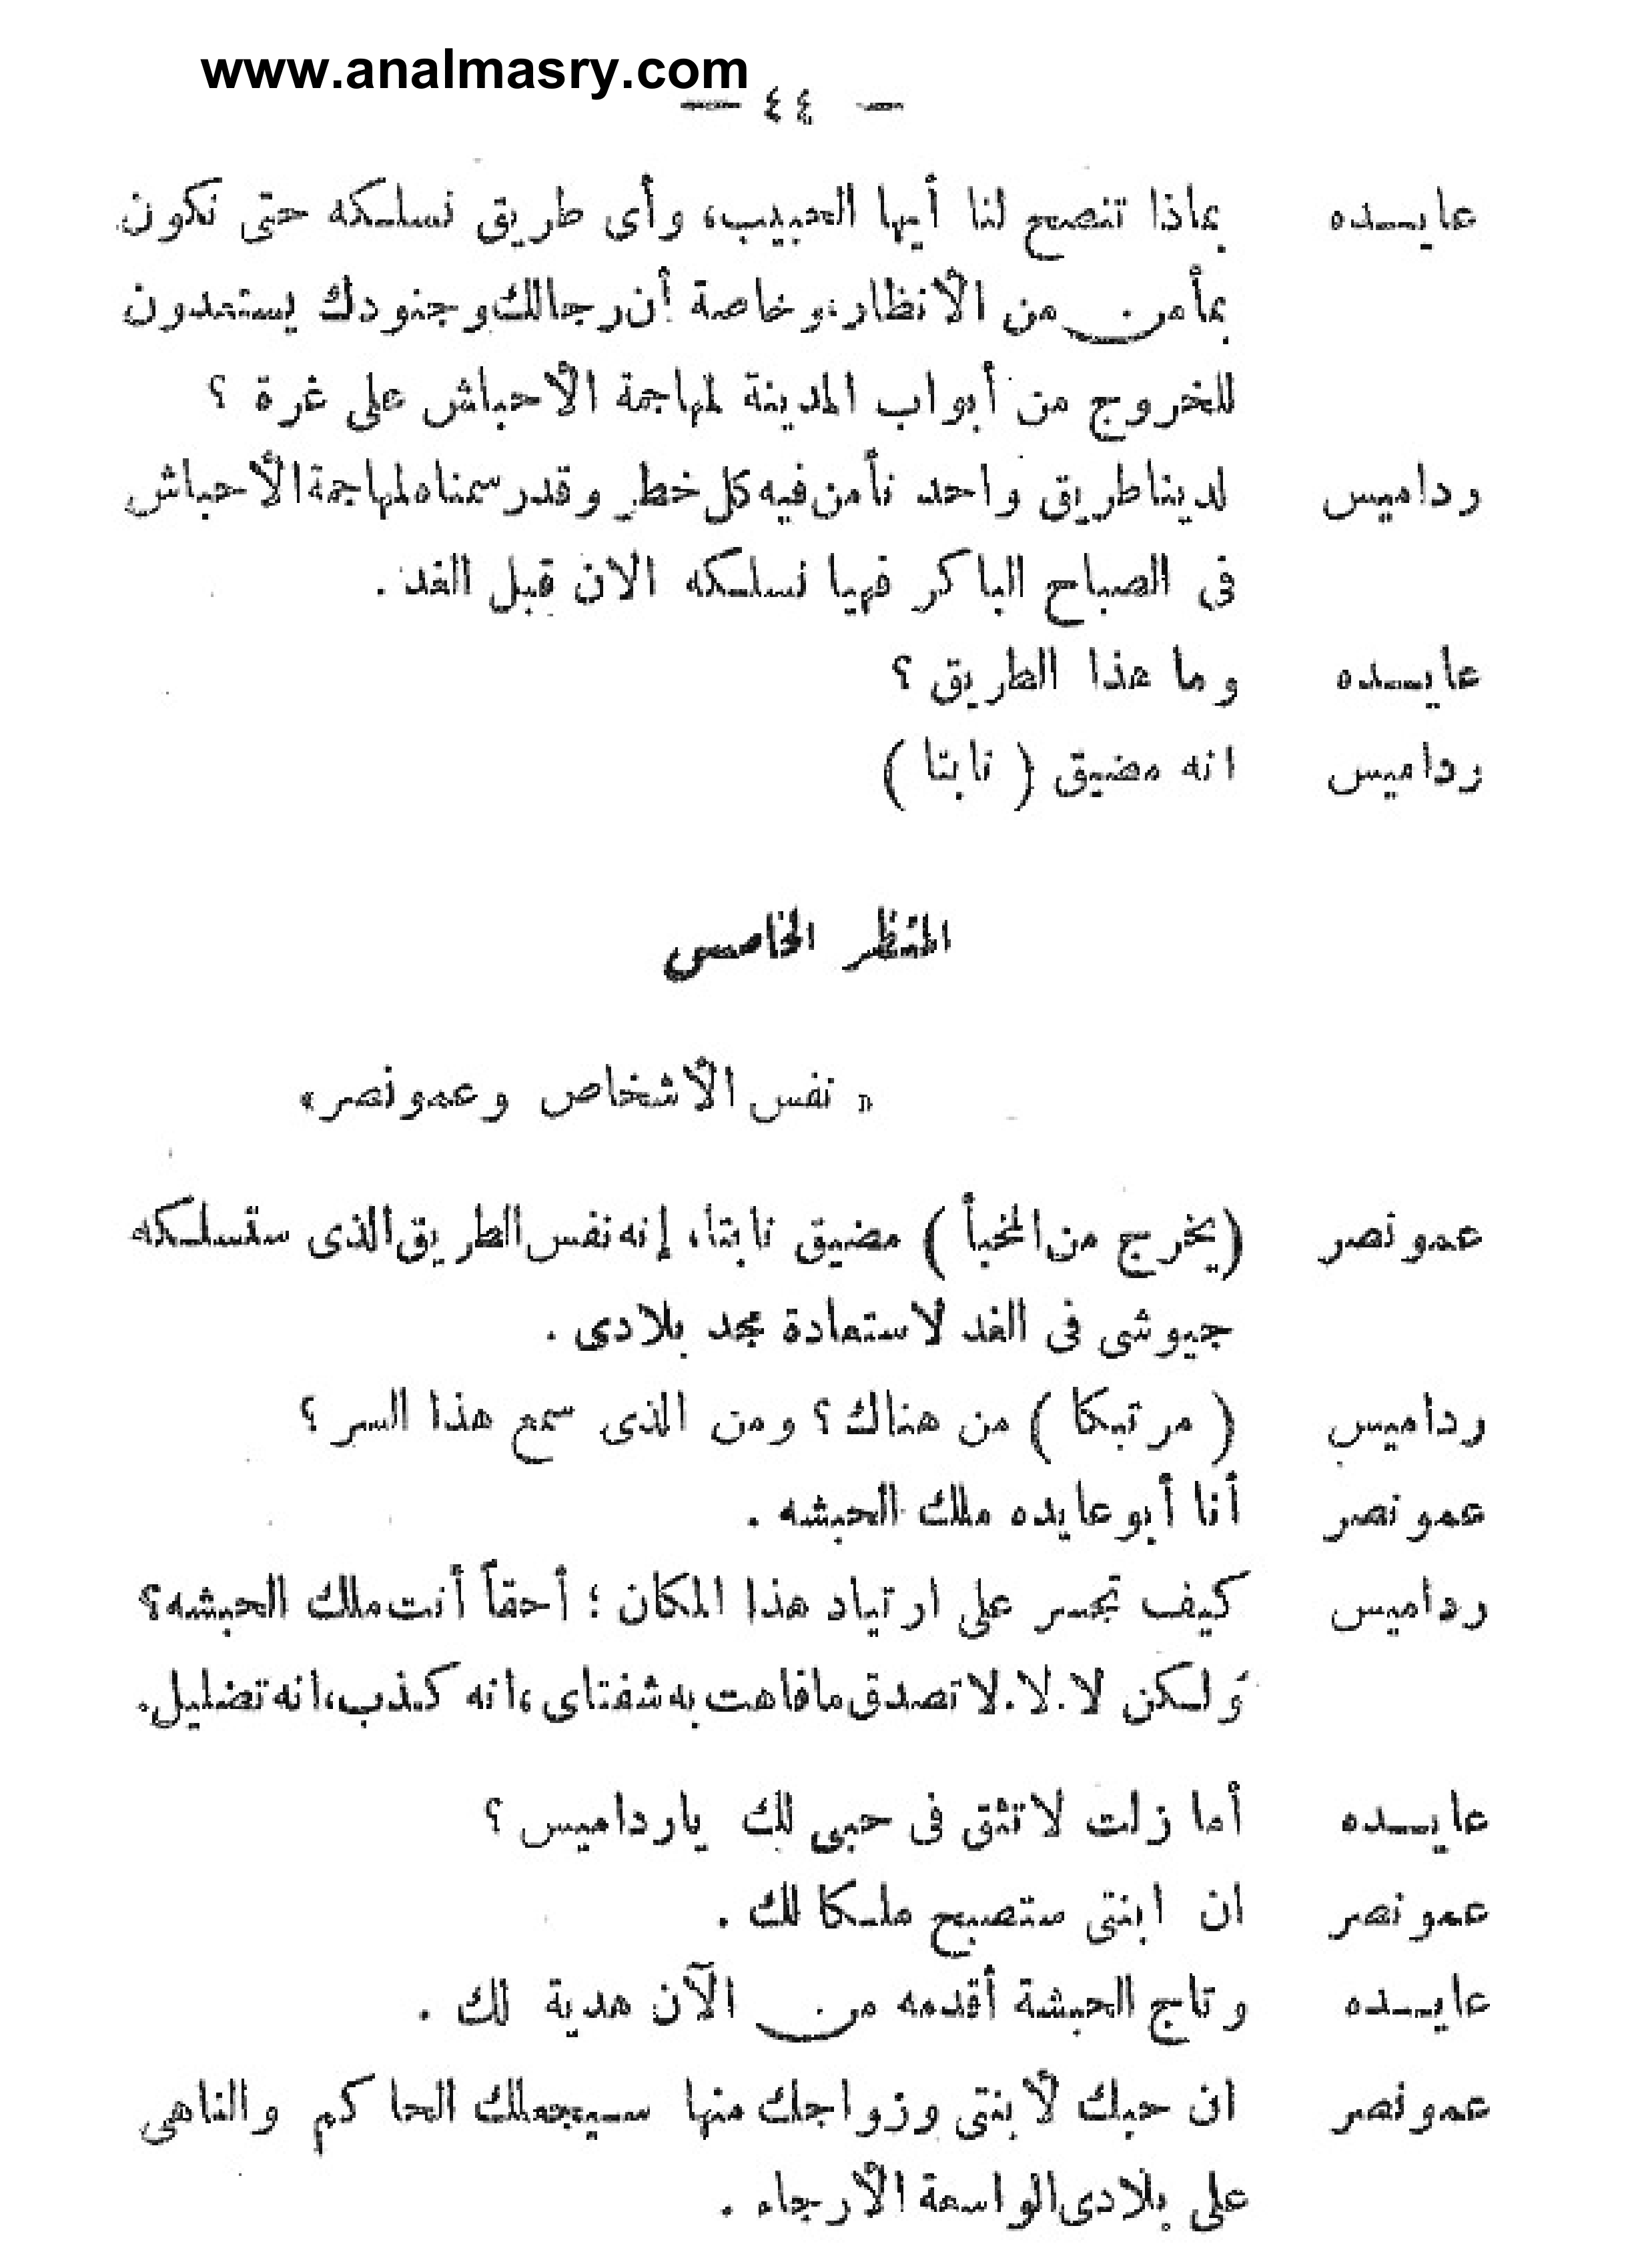 www.analmasry.com
— ٤٤ —
عايـــده بماذا تنصح لنا أيها الحبيب، وأى طريق نسلكه حتى نكون
بمأمن من الأنظار، وخاصة أن رجالك وجنودك يستعدون
للخروج من أبواب المدينة لمهاجمة الأحباش على غرة ؟
رداميس لدينا طريق واحد نأمن فيه كل خطر وقد رسمناه لمهاجمة الأحباش
فى الصباح الباكر فهيا نسلكه الان قبل الغد .
عايـــده وما هذا الطريق ؟
رداميس انه مضيق ( نابتا )
المنظر الخامس
« نفس الأشخاص وعمونصر »
عمونصر (يخرج من المخبأ ) مضيق نابتا، إنه نفس الطريق الذى ستسلكه
جيوشى فى الغد لاستعادة مجد بلادى .
رداميس ( مرتبكا ) من هناك ؟ ومن الذى سمع هذا السر ؟
عمونصر أنا أبو عايده ملك الحبشه .
رداميس كيف تجسر على ارتياد هذا المكان ؛ أحقاً أنت ملك الحبشه ؟
ولكن لا . لا . لا تصدق ما فاهت به شفتاى ، انه كذب ، انه تضليل .
عايـــده أما زلت لا تثق فى حبى لك يارداميس ؟
عمونصر ان ابنتى ستصبح ملكا لك .
عايـــده وتاج الحبشة أقدمه من الآن هدية لك .
عمونصر ان حبك لأبنتى وزواجك منها سيجعلك الحاكم والناهى
على بلادى الواسعة الأرجاء .